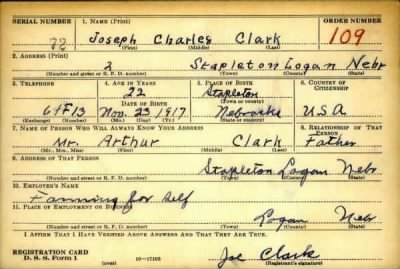 SERIAL NUMBER 1. NAME (Print) ORDER NUMBER
Joseph Charles Clark 109
(First) (Middle) (Last)
2. ADDRESS (Print)
2 Stapleton Logan Nebr
(Number and street or R. F. D. number) (Town) (County) (State)
3. TELEPHONE 4. AGE IN YEARS 5. PLACE OF BIRTH 6. COUNTRY OF CITIZENSHIP
22 Stapleton
DATE OF BIRTH (Town or county)
64F13 Nov. 23 1917 Nebraska USA
(Exchange) (Number) (Mo.) (Day) (Yr.) (State or country)
7. NAME OF PERSON WHO WILL ALWAYS KNOW YOUR ADDRESS 8. RELATIONSHIP OF THAT PERSON
Mr. Arthur Clark Father
(Mr., Mrs., Miss) (First) (Middle) (Last)
9. ADDRESS OF THAT PERSON
Stapleton Logan Nebr
(Number and street or R. F. D. number) (Town) (County) (State)
10. EMPLOYER'S NAME
Farming for self
11. PLACE OF EMPLOYMENT OR BUSINESS
Logan Nebr
(Number and street or R. F. D. number) (Town) (County) (State)
I AFFIRM THAT I HAVE VERIFIED ABOVE ANSWERS AND THAT THEY ARE TRUE.
REGISTRATION CARD
D. S. S. Form 1 (over) 16—17105 Joe Clark
(Registrant's signature)